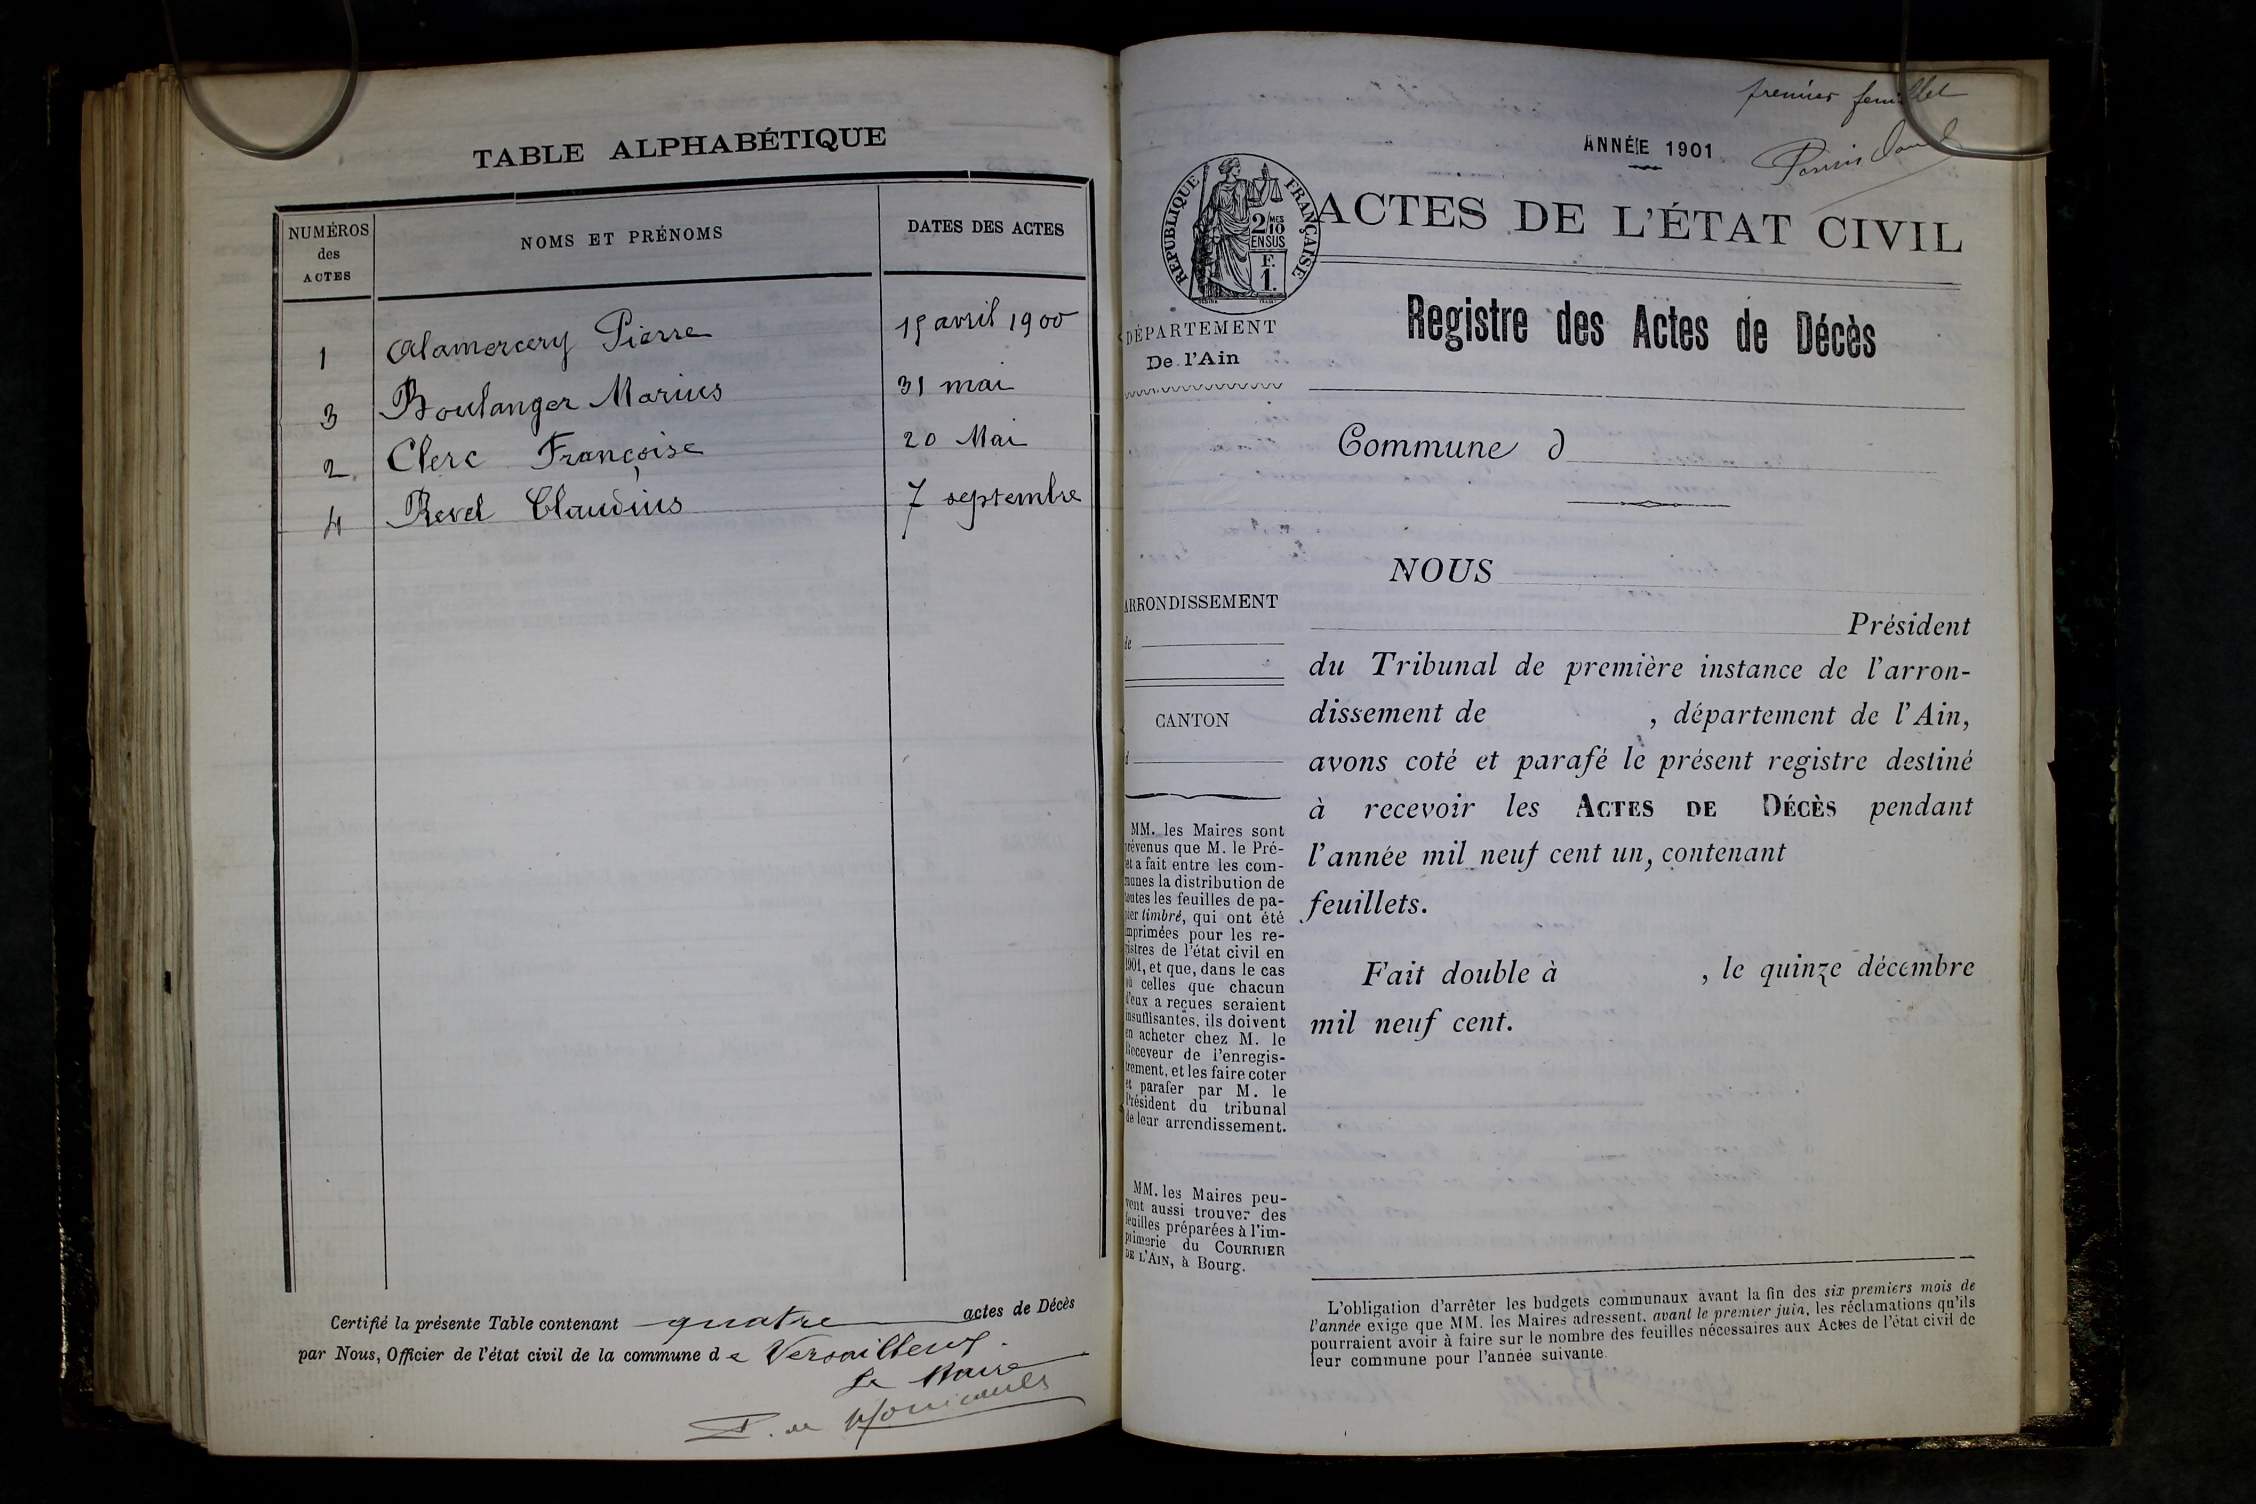 TABLE ALPHABÉTIQUE
NUMÉROS des ACTES
NOMS ET PRÉNOMS
DATES DES ACTES
1 Alamercery Pierre 15 avril 1900
3 Boulanger Marius 31 mai
2 Clerc Françoise 20 Mai
4 Revel Claudius 7 septembre
Certifié la présente Table contenant quatre actes de Décès
par Nous, Officier de l'état civil de la commune de Versailleux.
Le Maire
premier feuillet
ANNÉE 1901
RÉPUBLIQUE FRANÇAISE
2/10 MES
EN SUS
F.
1.
ACTES DE L'ÉTAT CIVIL
Registre des Actes de Décès
DÉPARTEMENT
De l'Ain
Commune d
NOUS
Président
du Tribunal de première instance de l'arron-
dissement de , département de l'Ain,
avons coté et parafé le présent registre destiné
à recevoir les ACTES DE DÉCÈS pendant
l'année mil neuf cent un, contenant
feuillets.
Fait double à , le quinze décembre
mil neuf cent.
ARRONDISSEMENT
de
CANTON
d
MM. les Maires sont
prévenus que M. le Pré-
et a fait entre les com-
munes la distribution de
toutes les feuilles de pa-
pier timbré, qui ont été
imprimées pour les re-
gistres de l'état civil en
1901, et que, dans le cas
où celles que chacun
d'eux a reçues seraient
insuffisantes, ils doivent
en acheter chez M. le
Receveur de l'enregis-
trement, et les faire coter
et parafer par M. le
Président du tribunal
de leur arrondissement.
MM. les Maires peu-
vent aussi trouver des
feuilles préparées à l'im-
primerie du COURRIER
DE L'AIN, à Bourg.
L'obligation d'arrêter les budgets communaux avant la fin des six premiers mois de
l'année exige que MM. les Maires adressent, avant le premier juin, les réclamations qu'ils
pourraient avoir à faire sur le nombre des feuilles nécessaires aux Actes de l'état civil de
leur commune pour l'année suivante.